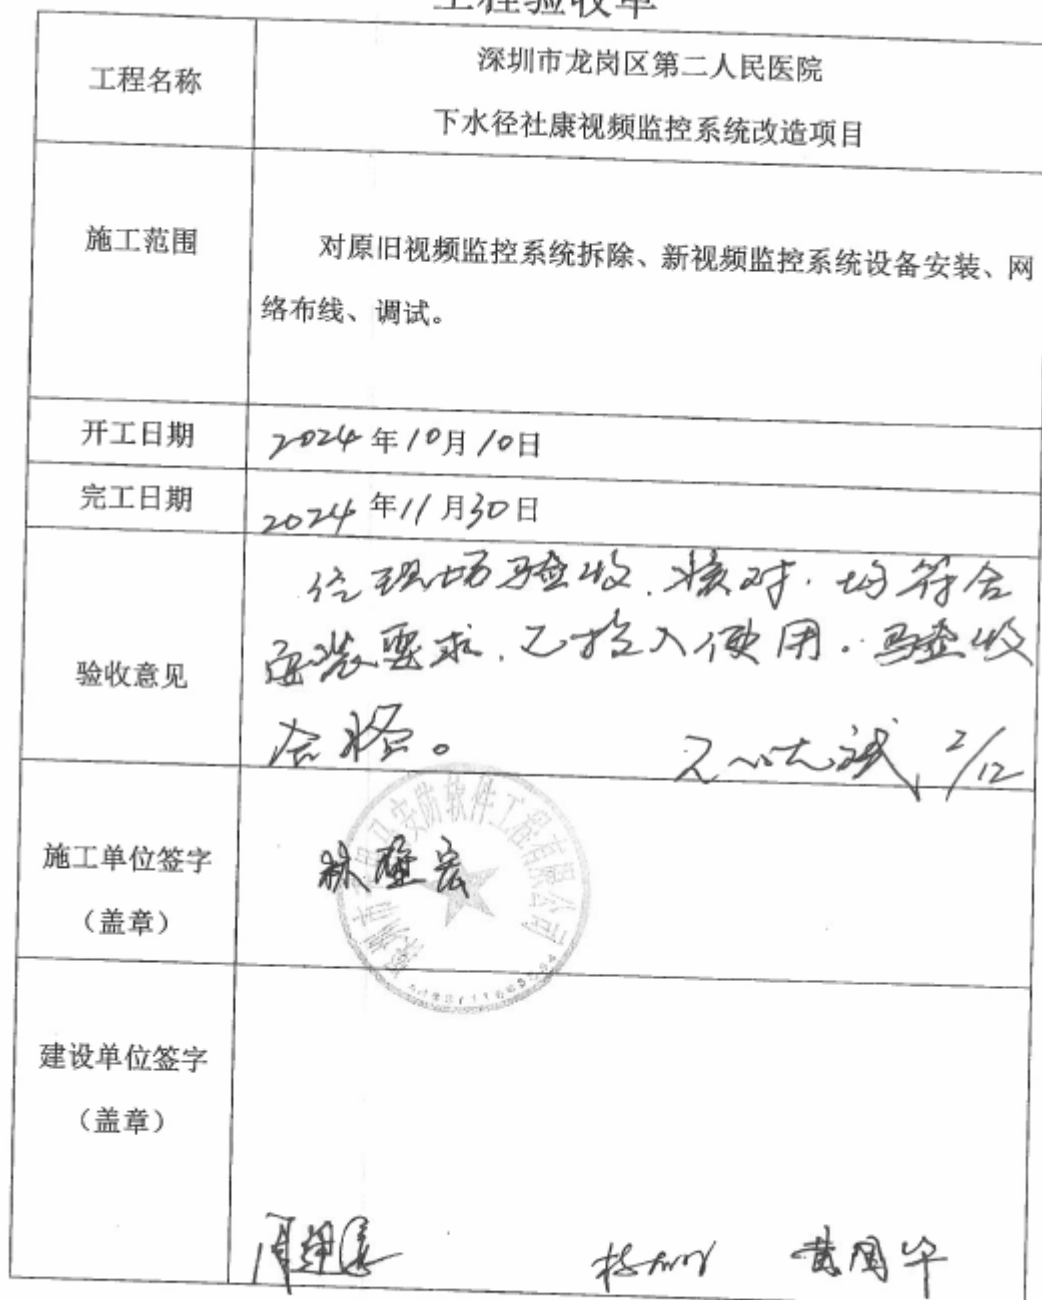 工程验收单
工程名称
深圳市龙岗区第二人民医院
下水径社康视频监控系统改造项目
施工范围
对原旧视频监控系统拆除、新视频监控系统设备安装、网
络布线、调试。
开工日期
2024年10月10日
完工日期
2024年11月30日
验收意见
经现场验收、核对,均符合
安装要求,已投入使用。验收
合格。
2/12
施工单位签字
(盖章)
深圳市 安防软件工程有限公司
建设单位签字
(盖章)
黄国华